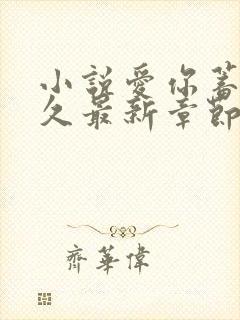 小說愛你蓄
久最新章節
齊華偉